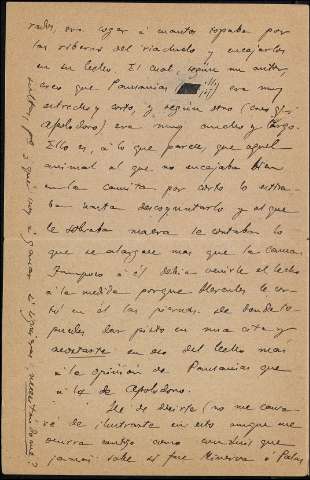 rados, era coger á cuantos topaba por
las riberas del riachuelo y encajarlos
en su lecho. El cual, según un autor,
creo que Pausanias era muy
estrecho y corto, y según otro (creo q.
Apolodoro) era muy ancho y largo.
Ello es, á lo que parece, que aquel
animal al que no encajaba bien
en la camita por corto lo estira-
ba hasta descoyuntarlo y al que
le sobraba le cortaban lo
que se alargase más que la cama.
Tampoco á él debía venirle el lecho
á la medida porque Hercules le cor-
tó en él las piernas. De donde
puedes dar pisto en una cita y
en eso del lecho más
á la opinión de Pausanias que
á la de Apolodoro.
He de decirte (no me cansa-
ré de ilustrarte en esto aunque me
ocurra contigo como con Luis que
jamás sabe si fué Minerva ó Palas